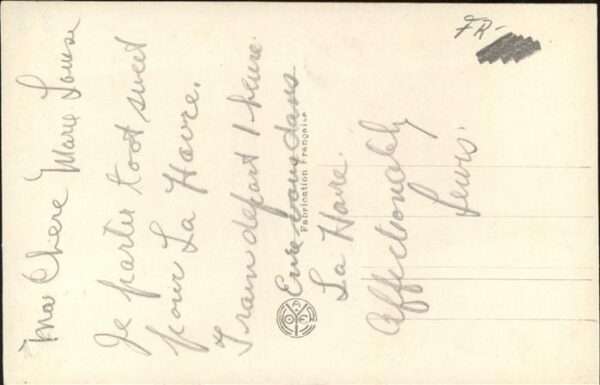 Ma Chere Marie Louise
Je partir toot sweet
pour La Havre.
Train depart 1 heure.
dans
La Havre.
Affectionably
Lewis.
Fabrication Française
FR-